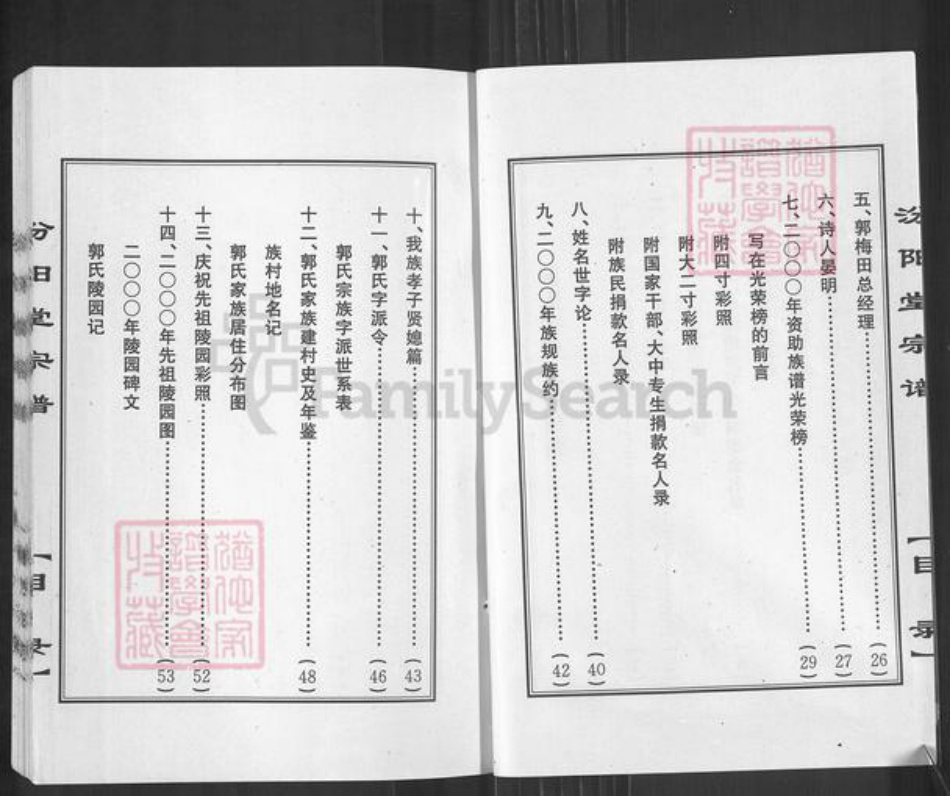 汾阳堂宗谱
【目录】
五、郭梅田总经理(26)
六、诗人晏明(27)
七、二〇〇〇年资助族谱光荣榜(29)
写在光荣榜的前言
附四寸彩照
附大二寸彩照
附国家干部、大中专生捐款名人录
附族民捐款名人录
八、姓名世字论(40)
九、二〇〇〇年族规族约(42)
十、我族孝子贤媳篇(43)
十一、郭氏字派令(46)
郭氏宗族字派世系表
十二、郭氏家族建村史及年鉴(48)
族村地名记
郭氏家族居住分布图
十三、庆祝先祖陵园彩照(52)
十四、二〇〇〇年先祖陵园图(53)
二〇〇〇年陵园碑文
郭氏陵园记
汾阳堂宗谱
【目录】
FamilySearch